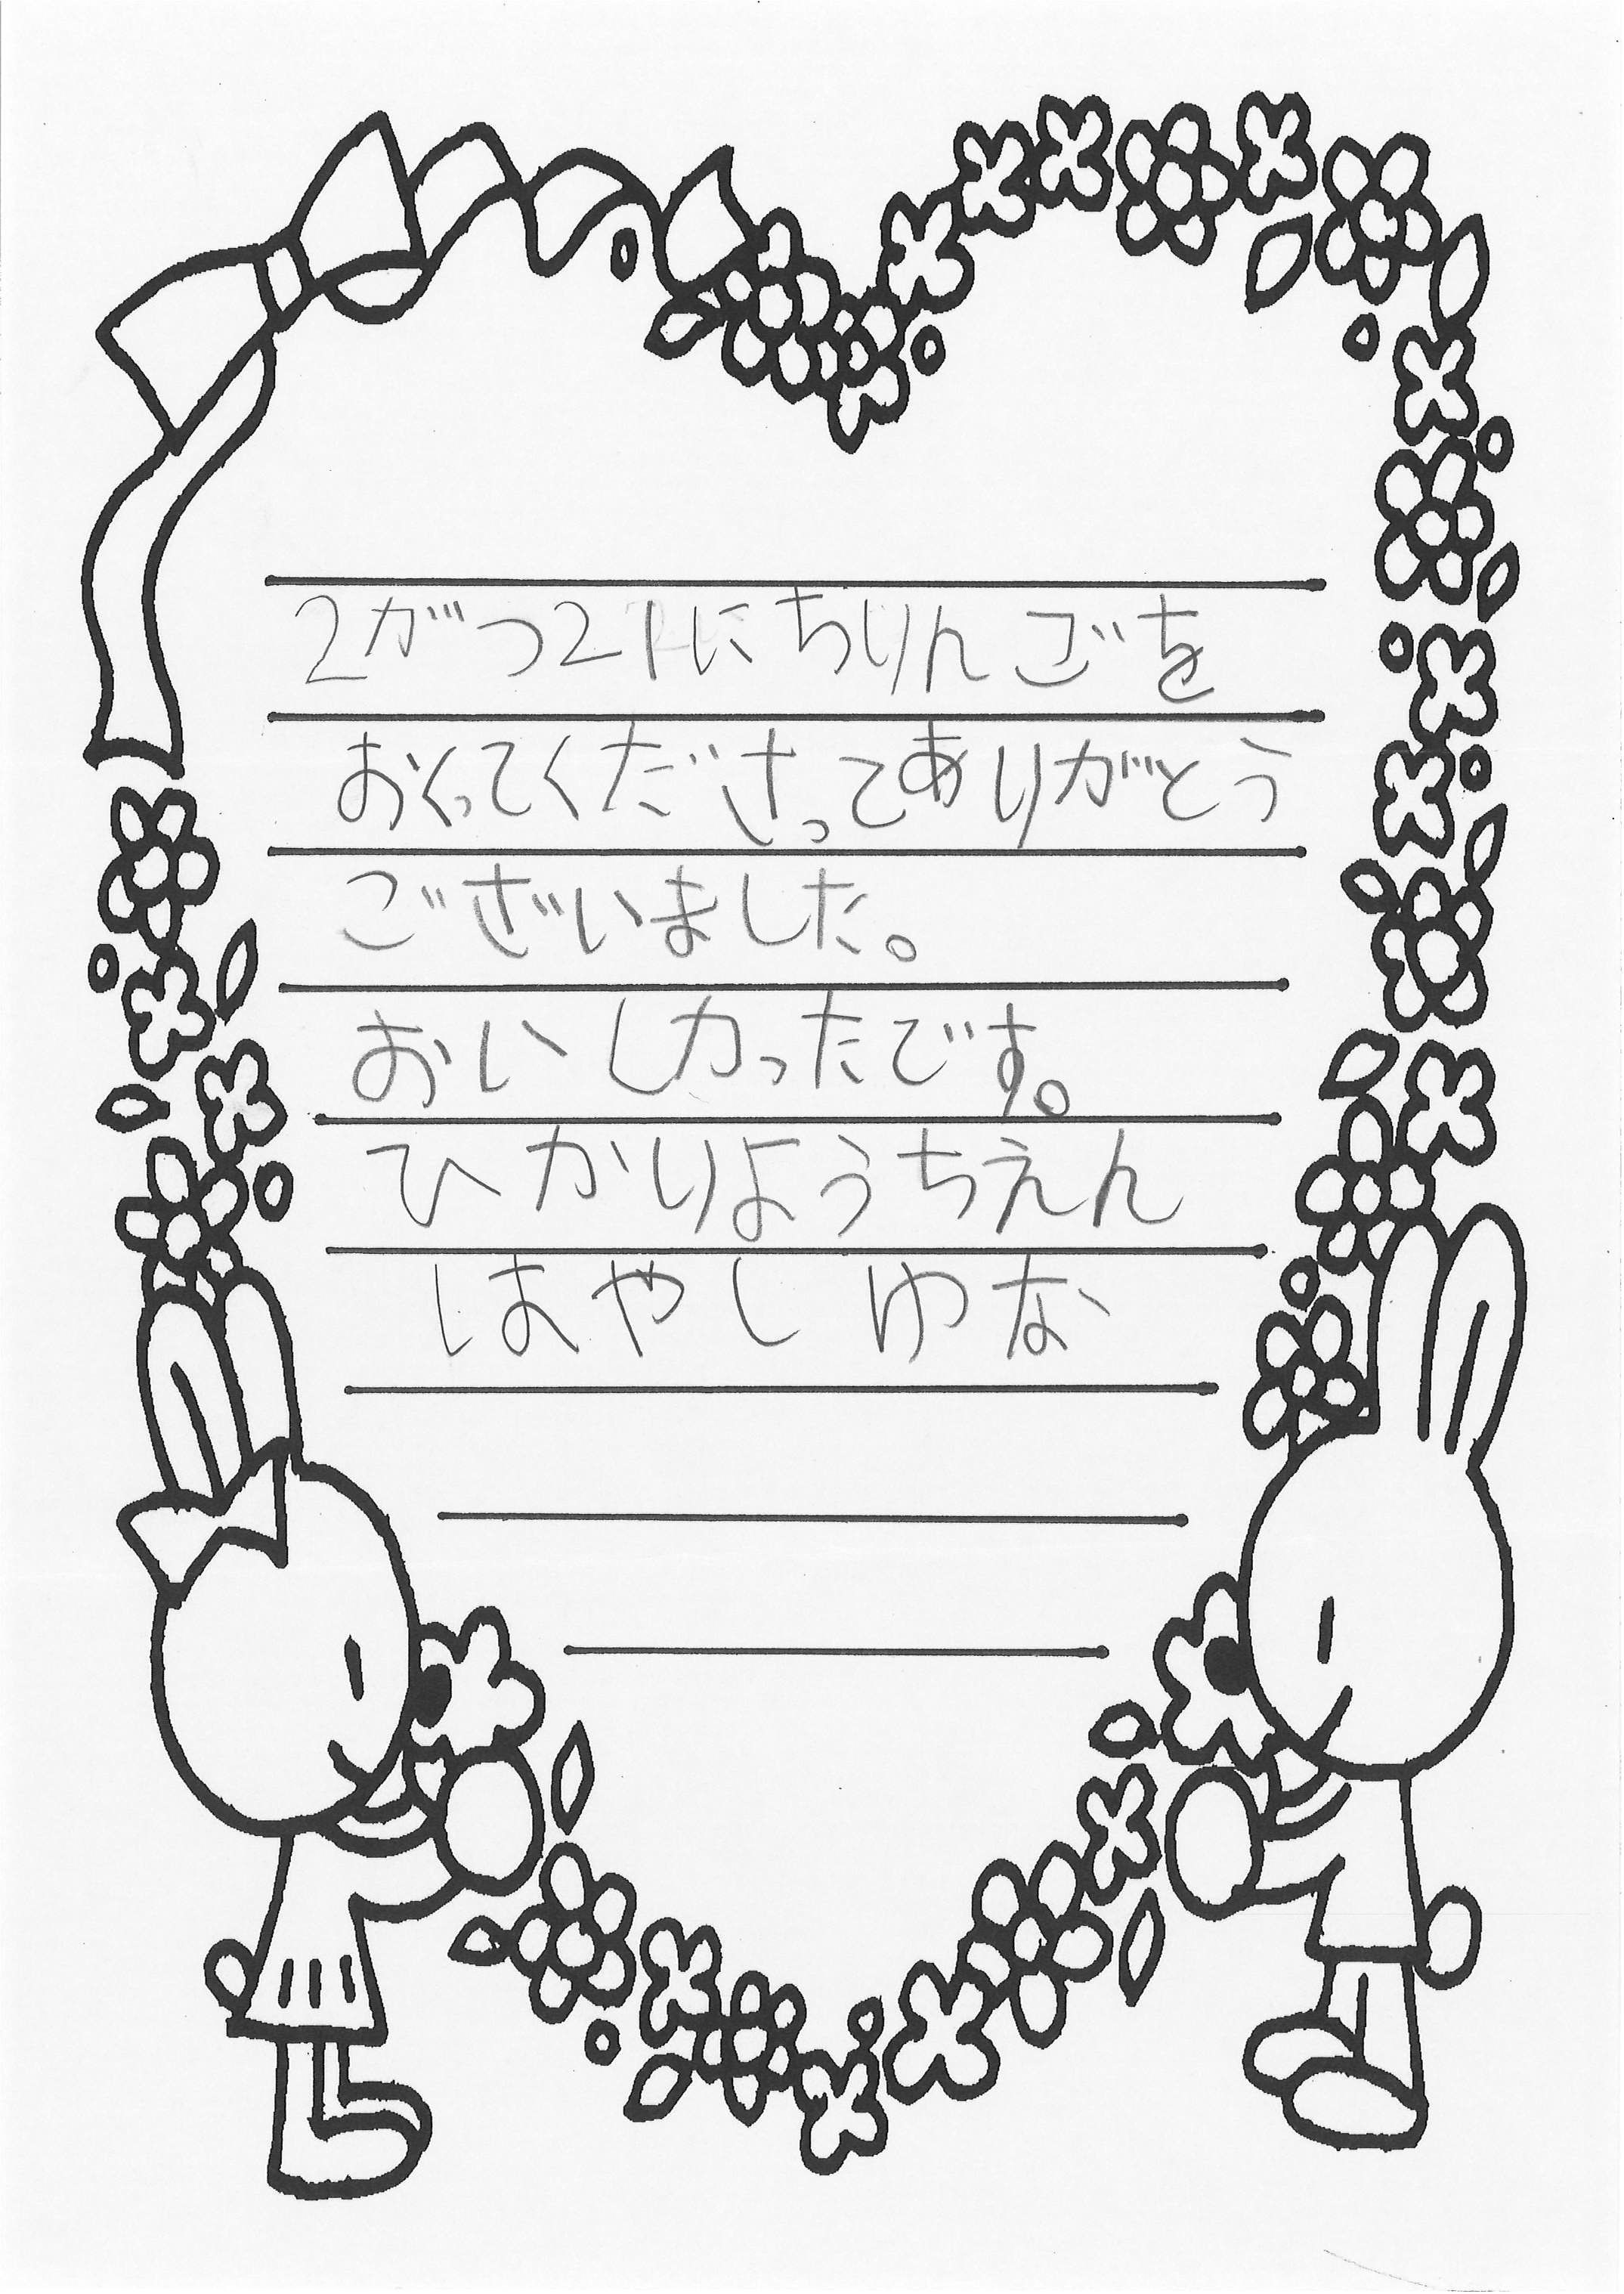 2がつ21にちりんごを
おくってくださってありがとう
ございました。
おいしかったです。
ひかりようちえん
はやし ゆな